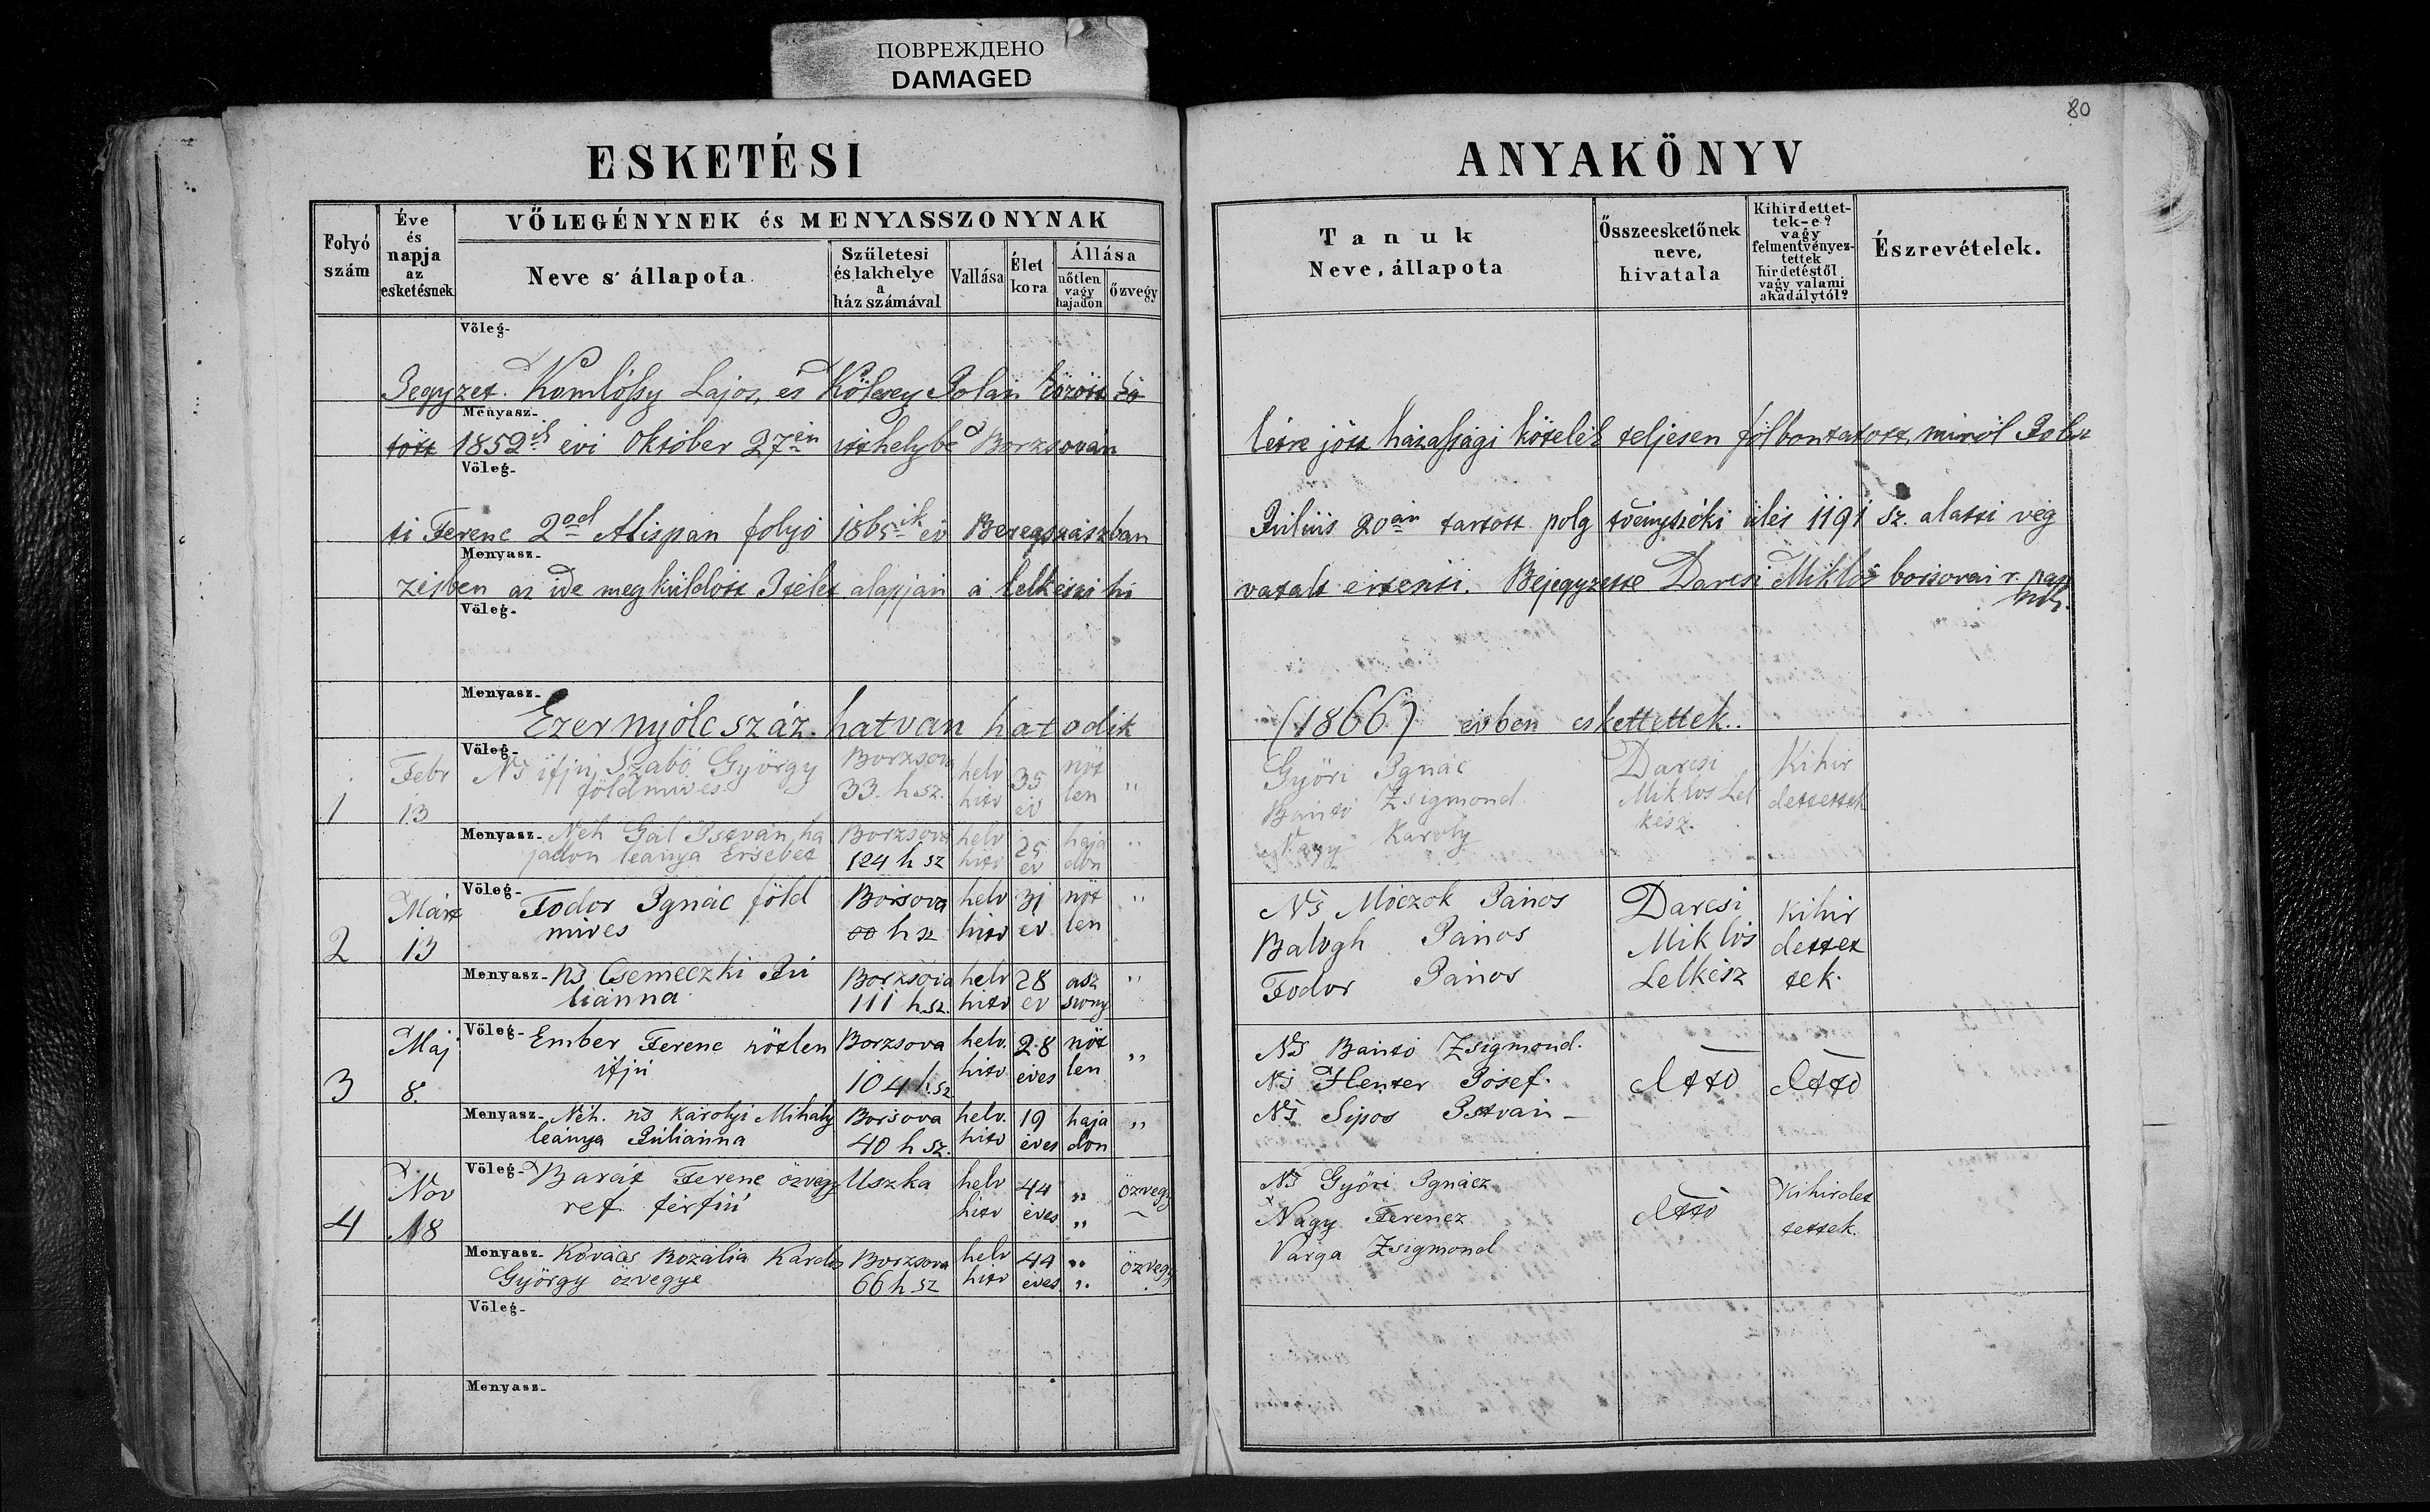 ПОВРЕЖДЕНО
DAMAGED
80
ESKETÉSI
ANYAKÖNYV
Folyó szám
Éve és napja az esketésnek
VŐLEGÉNYNEK és MENYASSZONYNAK
Neve s' állapota
Születesi és lakhelye a ház számával
Vallása
Élet kora
Állása
nőtlen vagy hajadon
őzvegy
Tanuk
Neve, állapota
Összeesketőnek neve, hivatala
Kihirdettet-tek-e? vagy felmentvényez-tettek hirdetéstől vagy valami akadálytól?
Észrevételek.
Vőleg-
Jegyzet. Komlóssy Lajos, és Kölcsey Polan között kö
Menyasz-
tött 1852ik évi október 27én itthelybe Borzsován
létre jött házassági kötelék teljesen fölbontatott, miröl
Vőleg-
ti Ferenc 2od Alispan folyó 1865ik év Beregszászban
Július 20án tartott polg tvényszéki ülés 1191 sz. alatti vég
Menyasz-
zésben az ide megküldött Itélet alapján a lelkészi hi
vatalt értensi. Bejegyzette Darcsi Miklós borsovai r. pap
mk.
Vőleg-
Menyasz-
Ezernyólcszáz hatvan hatodik
(1866) évben eskettettek.
Vőleg-
1 Febr 13 Ns ifju Szabó György földmives Borzsova 33. h sz. helv hitv 35 év nőt len "
Győri Ignác
Bantó Zsigmond
Nagy Karoly
Darcsi Miklos Lel kész.
Kihir dettettek
Menyasz- Néh Gál István ha jadon leánya Ersébet Borzsova 124 h sz helv hitv 25 év haja don "
2 Márt 13
Vőleg- Fodor Ignác föld mives Borsova 00 h sz helv hitv 31 év nőt len "
Ns Móczok János
Balogh János
Fodor János
Darcsi Miklós Lelkész
Kihir dettet tek.
Menyasz- ns Csemeczki Ju lianna Borzsova 111 h sz. helv hitv 28 év asz szony "
3 Maj 8.
Vőleg- Ember Ferenc nőtlen ifju Borzsova 104 h. sz helv. hitv 28 éves nőt len "
Ns Bantó Zsigmond.
Ns Henter Jósef.
Ns Sipos István
Menyasz- Néh. ns Karolyi Mihály leánya Júliánna Borsova 40 h sz. helv. hitv 19 éves haja don "
4 Nov 18
Vőleg- Barát Ferenc özvegy ref. férfiú Uszka helv hitv 44 éves " " özvegy
Ns Győri Ignácz
Nagy Ferencz
Varga Zsigmond
Kihirdet tettek.
Menyasz- Kovács Rozália Kardos György özvegye Borzsova 66 h sz helv hitv 44 éves " " özvegy
Vőleg-
Menyasz-